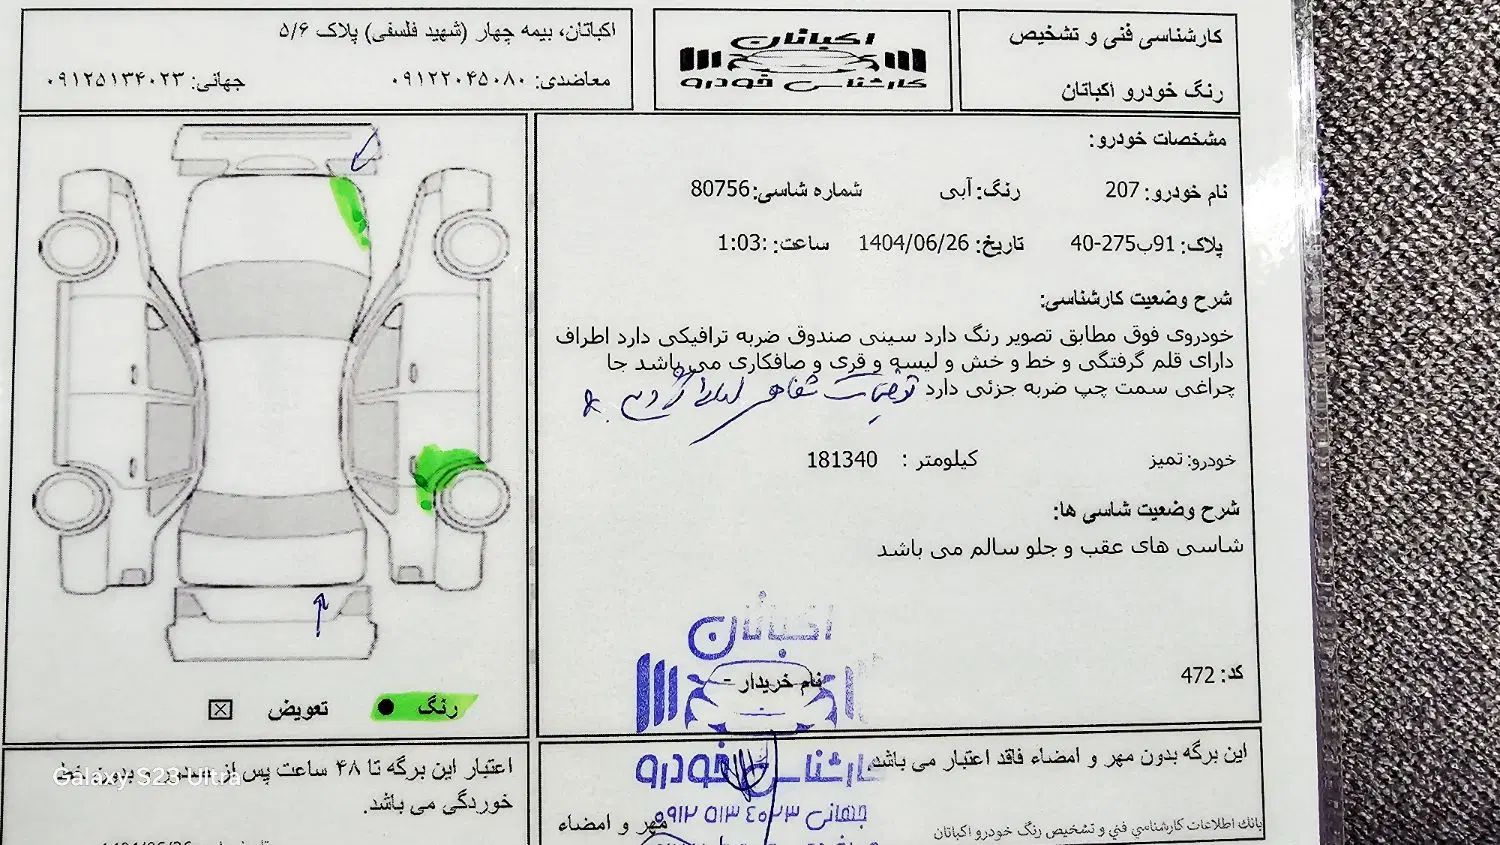 کارشناسی فنی و تشخیص
رنگ خودرو اکباتان
اکباتان
کارشناسی خودرو
اکباتان، بیمه چهار (شهید فلسفی) پلاک ۵/۶
معاضدی: ۰۹۱۲۲۰۴۵۰۸۰ جهانی: ۰۹۱۲۵۱۳۴۰۲۳
مشخصات خودرو:
نام خودرو: 207 رنگ: آبی شماره شاسی: 80756
پلاک: 91ب275-40 تاریخ: 1404/06/26 ساعت: :1:03
شرح وضعیت کارشناسی:
خودروی فوق مطابق تصویر رنگ دارد سینی صندوق ضربه ترافیکی دارد اطراف
دارای قلم گرفتگی و خط و خش و لیسه و قری و صافکاری می باشد جا
چراغی سمت چپ ضربه جزئی دارد توضیحات شفاهی
خودرو: تمیز کیلومتر : 181340
شرح وضعیت شاسی ها:
شاسی های عقب و جلو سالم می باشد
کد: 472
اکباتان
نام خریدار -
کارشناسی خودرو
جهانی ۰۹۱۲ ۵۱۳ ۴۰۲۳
رنگ تعویض
این برگه بدون مهر و امضاء فاقد اعتبار می باشد.
مهر و امضاء
بانک اطلاعات کارشناسی فنی و تشخیص رنگ خودرو اکباتان
اعتبار این برگه تا ۴۸ ساعت پس از بدون خط
خوردگی می باشد.
Galaxy S23 Ultra